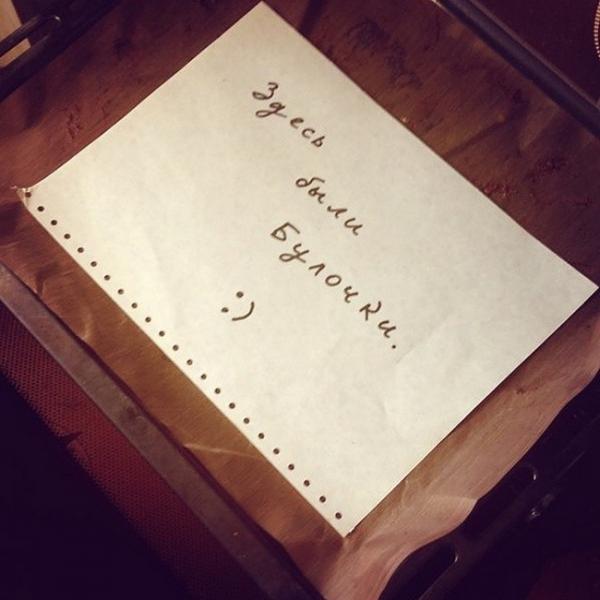 Здесь
были
Булочки.
:)